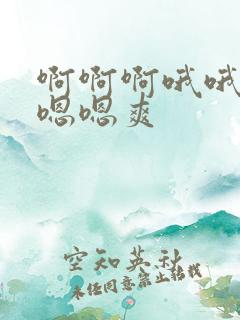 啊啊啊哦哦
嗯嗯爽
空知英秋
未经同意禁止转载